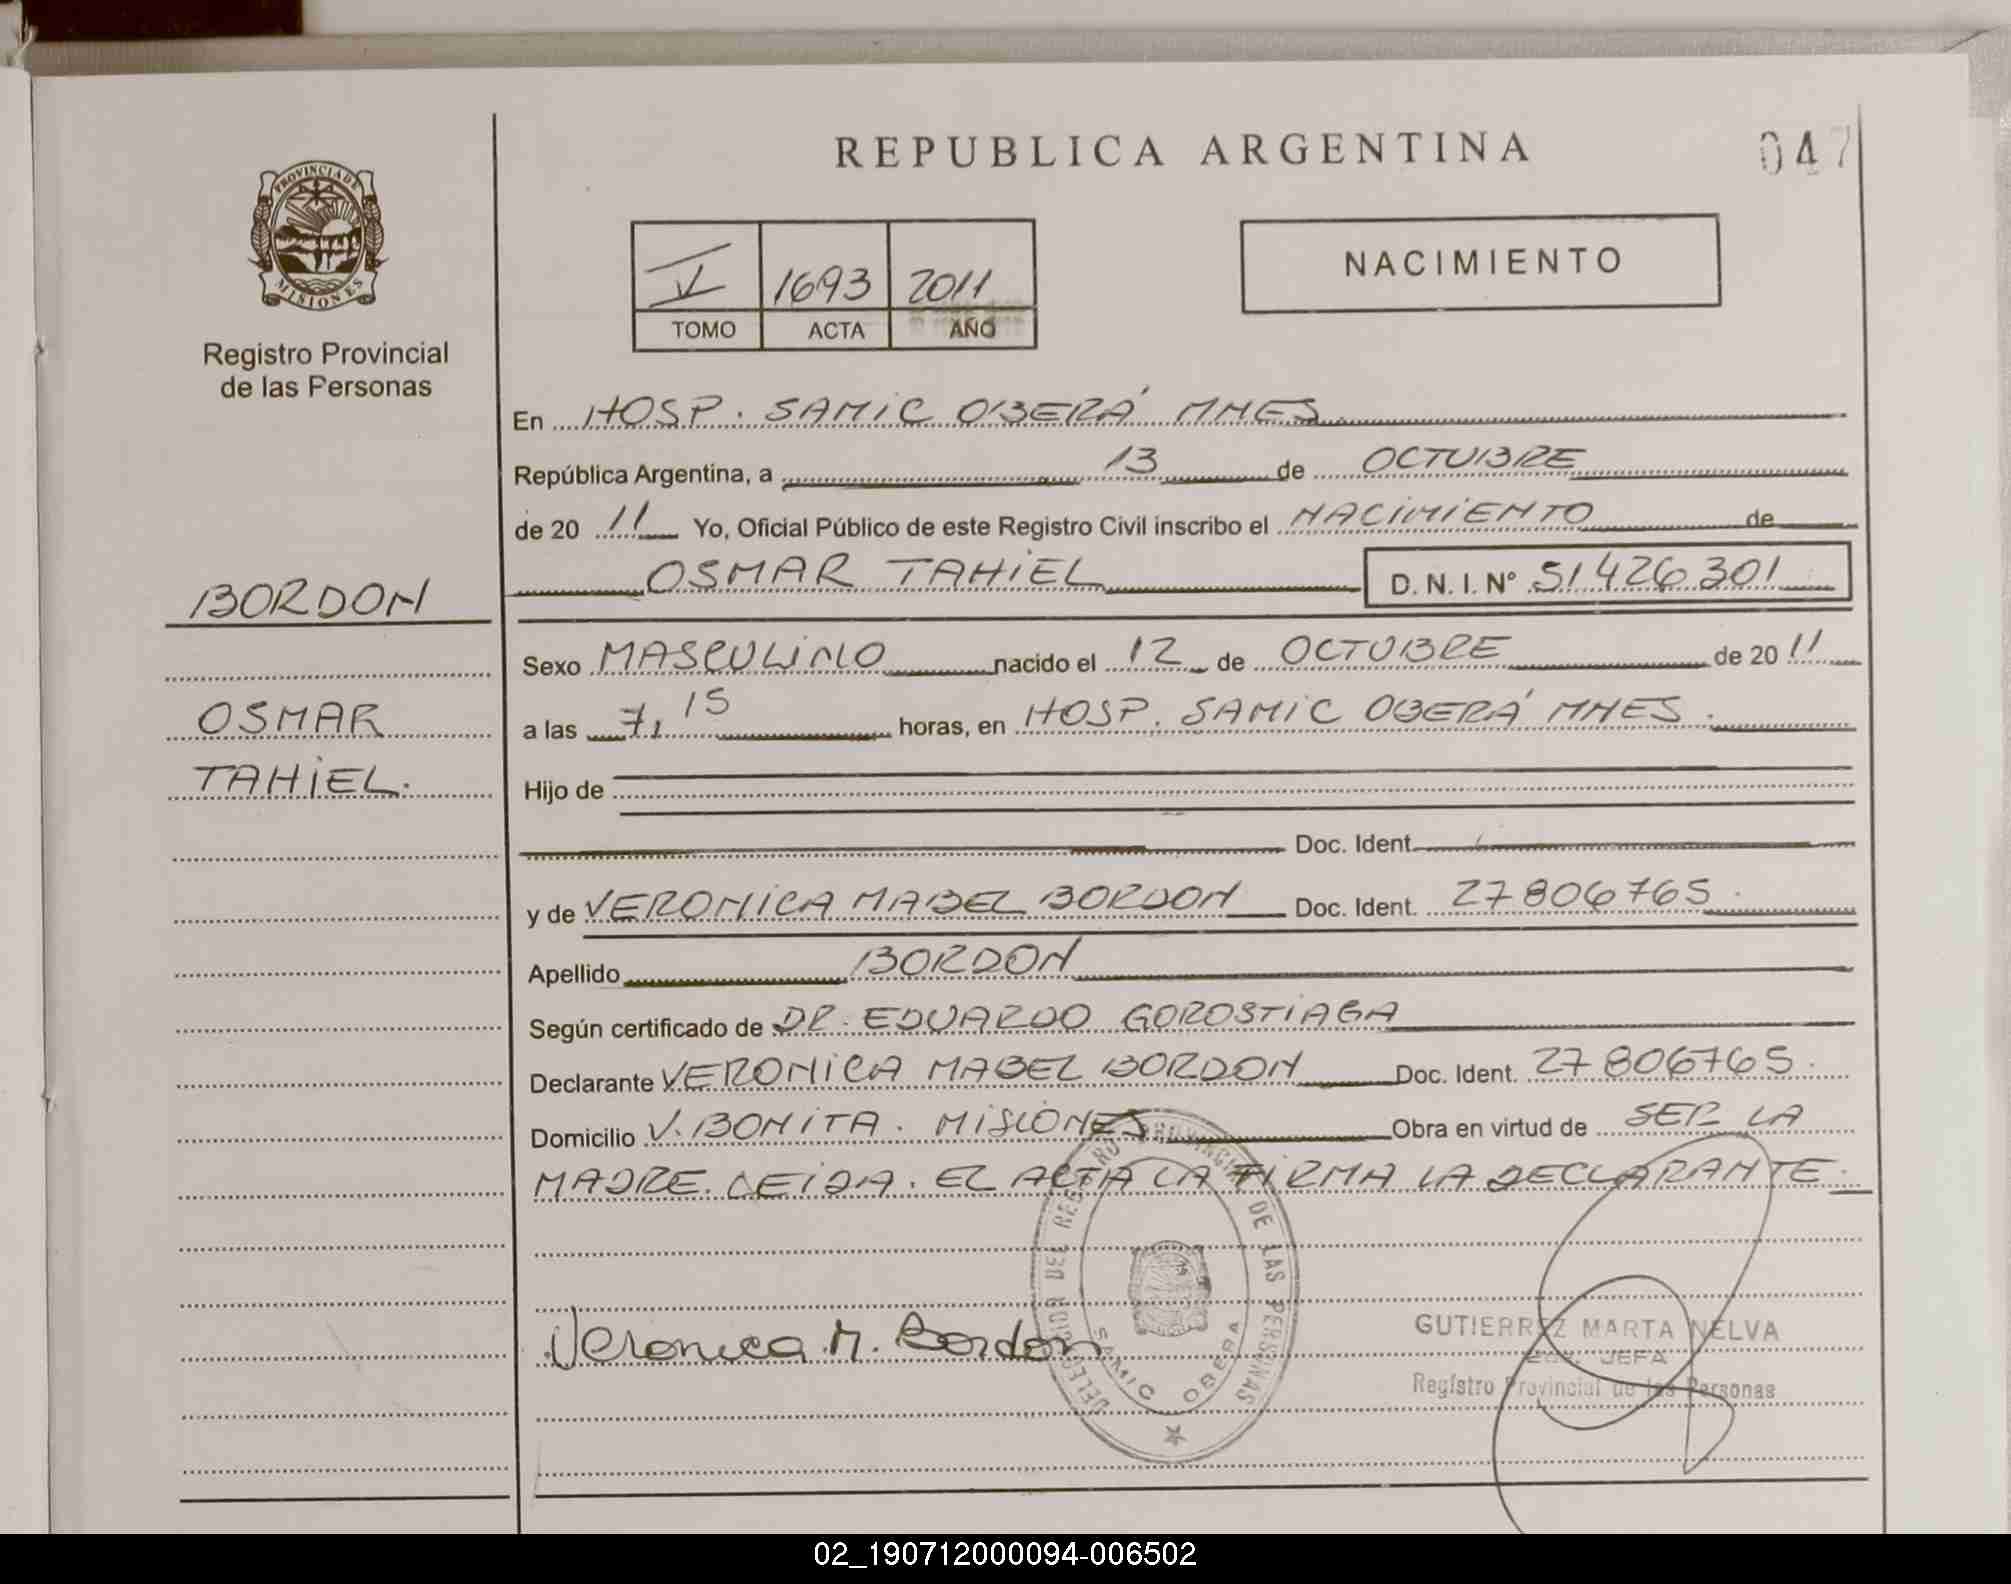 REPUBLICA ARGENTINA
047
PROVINCIA DE
MISIONES
Registro Provincial
de las Personas
V 1693 2011
TOMO ACTA AÑO
NACIMIENTO
En HOSP. SAMIC OBERÁ MNES
República Argentina, a 13 de OCTUBRE
de 20 11 Yo, Oficial Público de este Registro Civil inscribo el NACIMIENTO de
OSMAR TAHIEL D. N. I. N° 51426301
BORDON
OSMAR
TAHIEL.
Sexo MASCULINO nacido el 12 de OCTUBRE de 20 11
a las 7,15 horas, en HOSP. SAMIC OBERÁ MNES.
Hijo de
Doc. Ident.
y de VERONICA MABEL BORDON Doc. Ident. 27806765.
Apellido BORDON
Según certificado de DR. EDUARDO GOROSTIAGA
Declarante VERONICA MABEL BORDON Doc. Ident. 27806765.
Domicilio V. BONITA. MISIONES Obra en virtud de SER LA
MADRE. LEIDA. EL ACTA LA FIRMA LA DECLARANTE.
Veronica M. Bordon
DEL REGISTRO PROVINCIAL DE LAS PERSONAS
SAMIC OBERA
GUTIERREZ MARTA NELVA
JEFA
Registro Provincial de las Personas
02_190712000094-006502